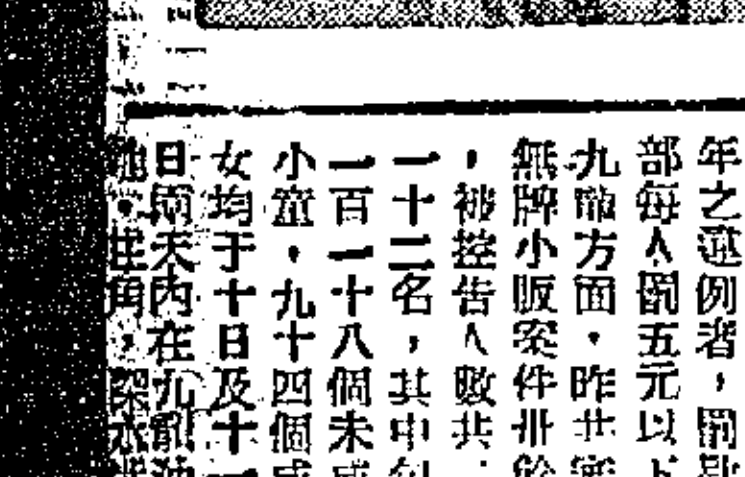 年之違例者，罰款
部每人罰五元以下
九龍方面，昨共審
無牌小販案件卅餘
，被控告人數共
一十二名，其中包
一百一十八個未成
小童，九十四個成
女均于十日及十一
日兩天內在九龍油
地，旺角，深水